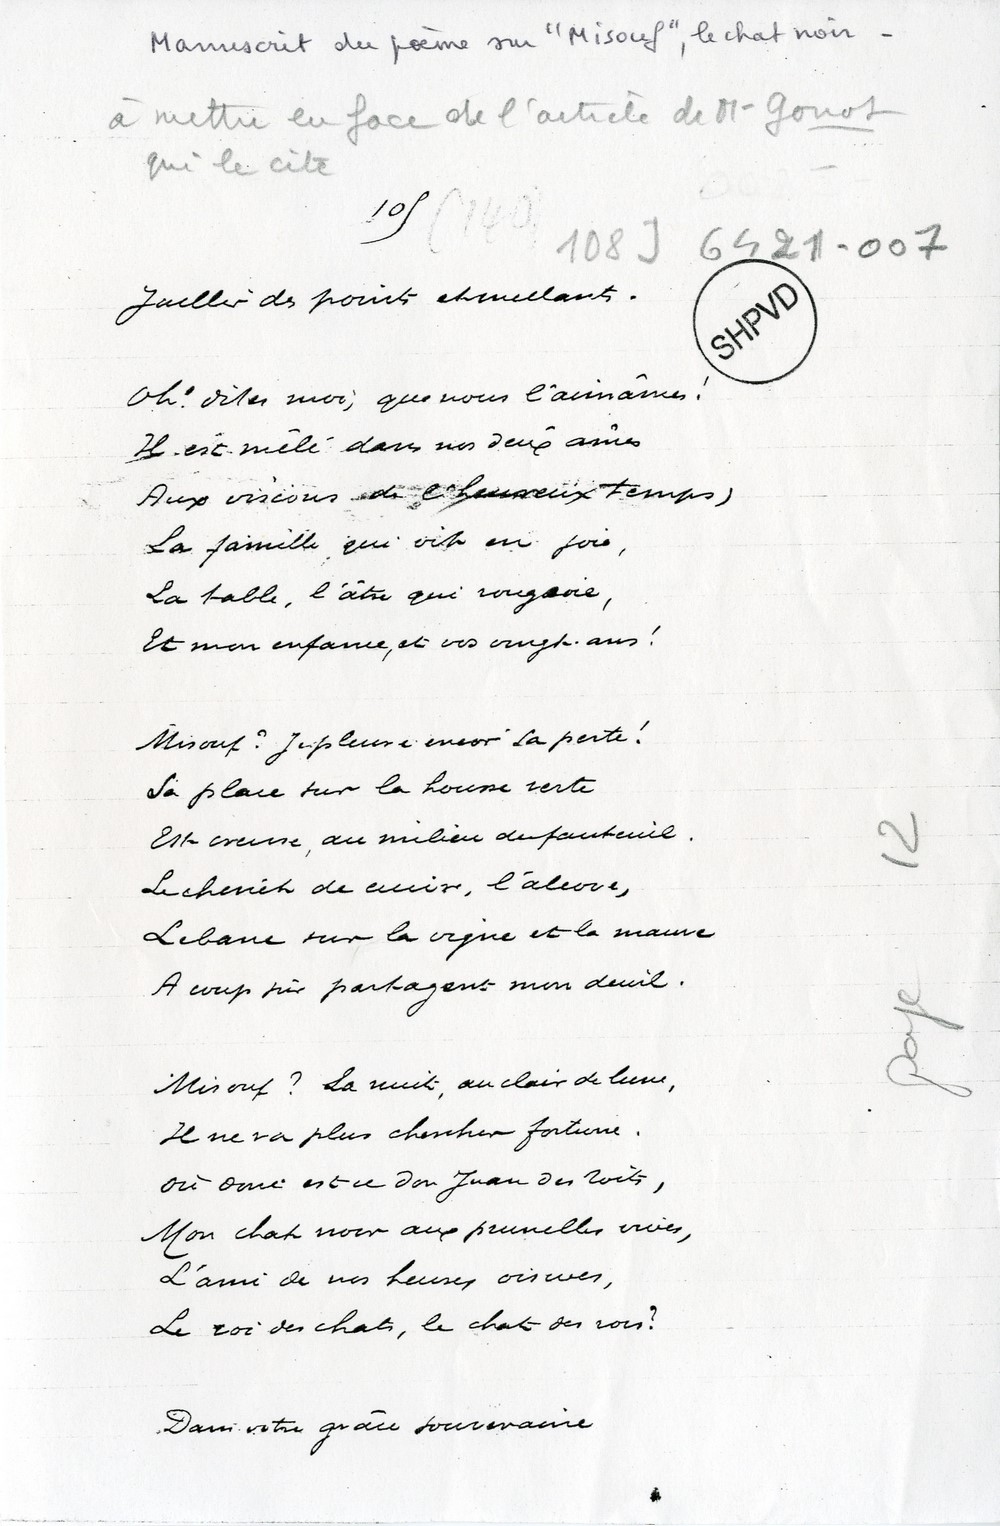 Manuscrit du poème sur "Misouf", le chat noir -
à mettre en face de l'article de Mr Gonot
qui le cite
105 (140)
108] 6421-007
SHPVD
Jaillir des points étincelants.
Oh! dites moi, que nous l'aimâmes!
Il est mêlé dans nos deux âmes
Aux visions de l'heureux temps,
La famille qui vit en joie,
La table, l'âtre qui rougeoie,
Et mon enfance, et vos vingt ans!
Misouf? Je pleure encor sa perte!
Sa place sur la housse verte
Est creuse, au milieu du fauteuil.
Le chenêt de cuivre, l'alcove,
Le banc sur la vigne et la mauve
A coup sûr partagent mon deuil.
Misouf? La nuit, au clair de lune,
Il ne va plus chercher fortune.
Où donc est ce don Juan des toits,
Mon chat noir aux prunelles vives,
L'ami de nos heures oisives,
Le roi des chats, le chat des rois?
Dans votre grâce souveraine
page 12